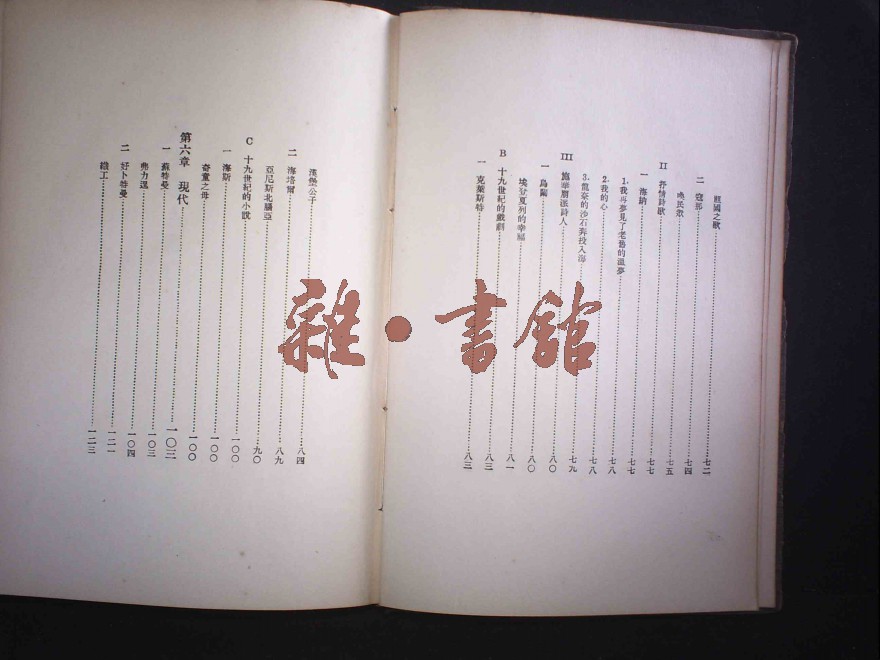 祖國之歌……七二
二 寇那……七四
喚民眾……七五
II 抒情詩歌……七七
一 海納……七七
1.我再夢見了老舊的溫夢……七八
2.我的心……七八
3.龍奈的沙石奔投入海……七九
III 施華朋派詩人……八〇
一 烏蘭……八〇
埃登夏列的幸福……八一
B 十九世紀的戲劇……八三
一 克萊斯特……八三
漢堡公子……八四
二 海培爾……八九
亞尼斯北腦亞……九〇
C 十九世紀的小說……一〇〇
一 海斯……一〇〇
奇童之母……一〇〇
第六章 現代……一〇三
一 蘇特曼……一〇三
弗力況……一〇四
二 好卜特曼……一二一
織工……一二三
雜·書館